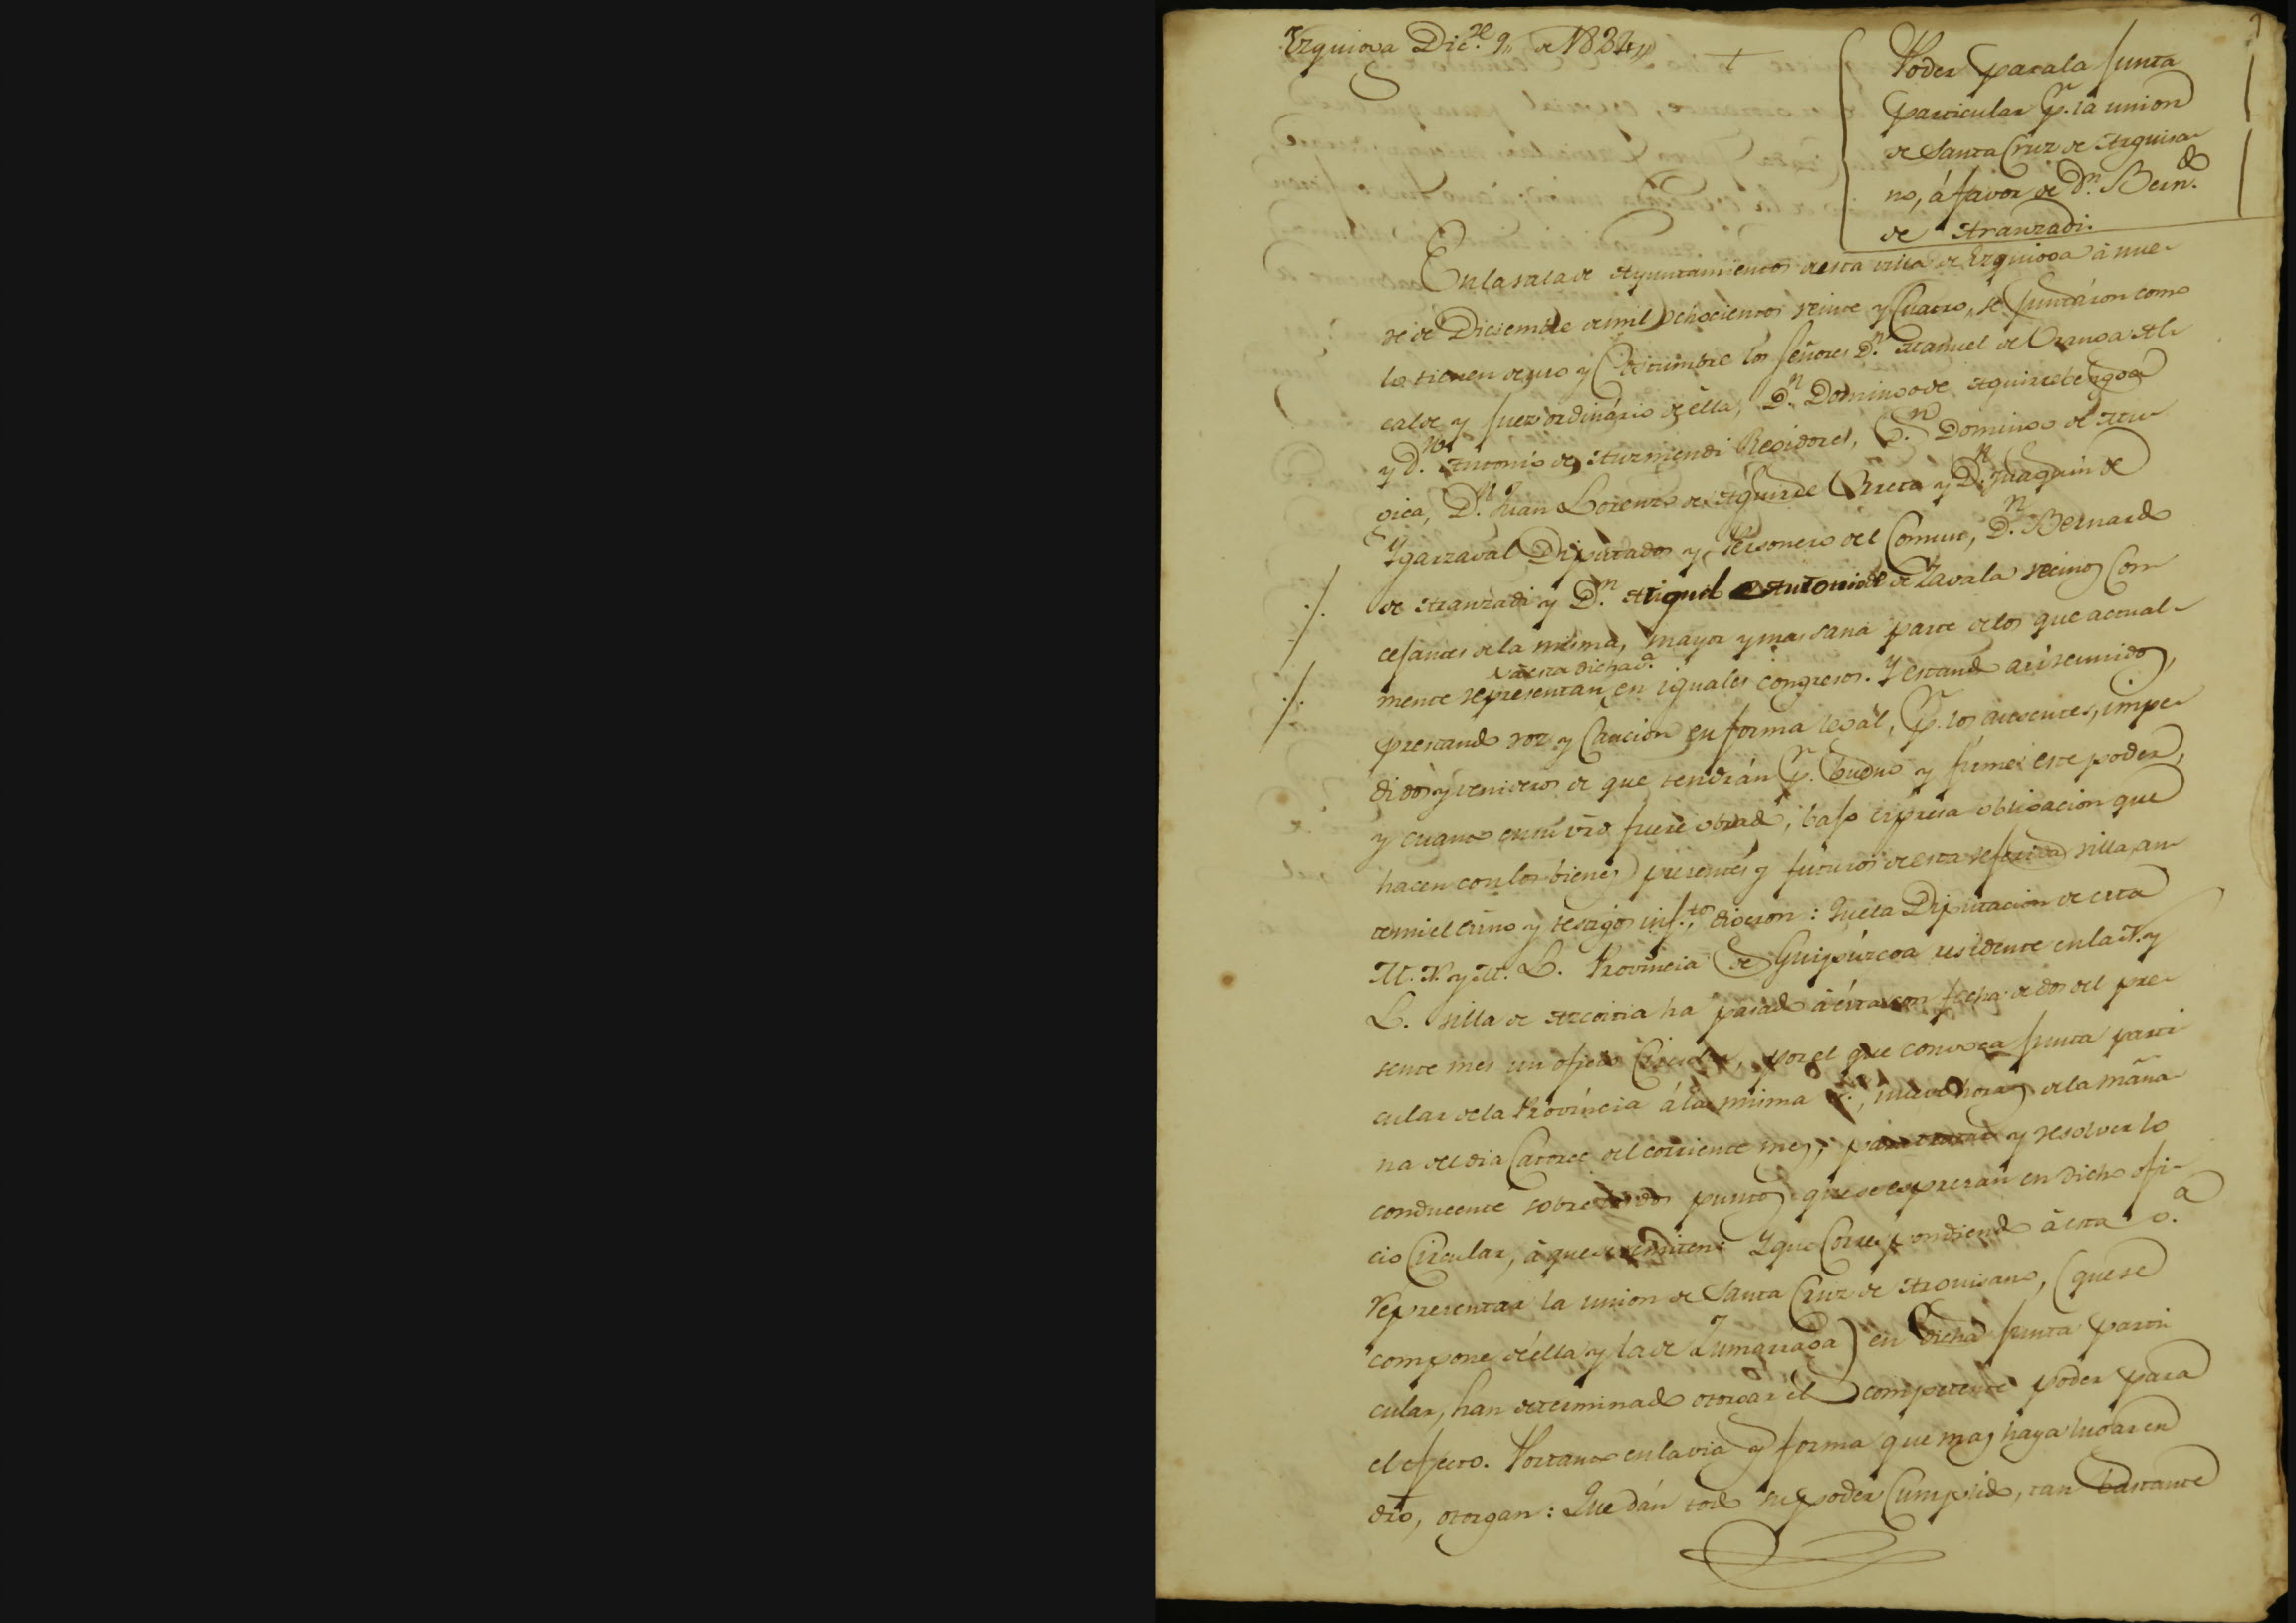 Ezquioga Dic.re 9,, de 1824,,
+
Poder para la Junta
particular p.r la union
de Santa Cruz de Arguisa-
no, á favor de D.n Bern.do
de Aranzadi.
En la sala de Ayuntamientos de esta villa de Ezquioga à nue-
ve de Diciembre de mil ochocientos veinte y Cuatro, se juntáron como
lo tienen de uso y Costumbre los Señores D.n Manuel de Oranoa Al-
calde y Juez ordinário de ella, D.n Domingo de Aguirrebengoa
y D.n Antonio de Aurmendi Regidores, D.n Domingo de Mu-
gica, D.n Juan Lorenzo de Aguirre Urreta y D.n Juaquin de
Ygarzaval Diputados y Personero del Comun, D.n Bernardo
./. de Aranzadi y D.n Miguel Antonio de Zavala vecinos Con-
cejantes de la misma, mayor y mas sana parte de los que actual-
à esta dicha v.a
./. mente representan en iguales congresos. Y estando asi reunidos,
prestando voz y Caucion en forma legál, p.r los ausentes, impe-
didos y venideros de que tendrán p.r bueno y firme este poder,
y cuanto en su vrd fuere obrado, bajo expresa obligacion que
hacen con los bienes presentes y futuros de esta referida villa, an-
te mi el Esno y testigos inf.tos, dixeron: Que la Diputacion de esta
M. N. y M. L. Provincia de Guipúzcoa residente en la N. y
L. villa de Azcoitia ha pasado à esta con fecha de dos del pre-
sente mes un oficio Circular, por el que convoca Junta parti
cular de la Província á la misma v.a, nueve horas de la maña-
na del dia Catorce del corriente mes, para tratar y resolver lo
conducente sobre los dos puntos que se expresan en dicho ofi-
cio Circular, à que se remiten: Y que Correspondiendo à esta v.a
representar la union de Santa Cruz de Arguisano, (que se
compone de ella y la de Zumarraga) en dicha Junta parti
cular, han determinado otorgar el competente poder para
el efecto. Por tanto en la via y forma que mas haya lugar en
dro, otorgan: Que dán todo su poder Cumplido, tan bastante